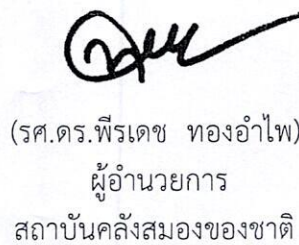 (รศ.ดร.พีรเดช ทองอำไพ)
ผู้อำนวยการ
สถาบันคลังสมองของชาติ